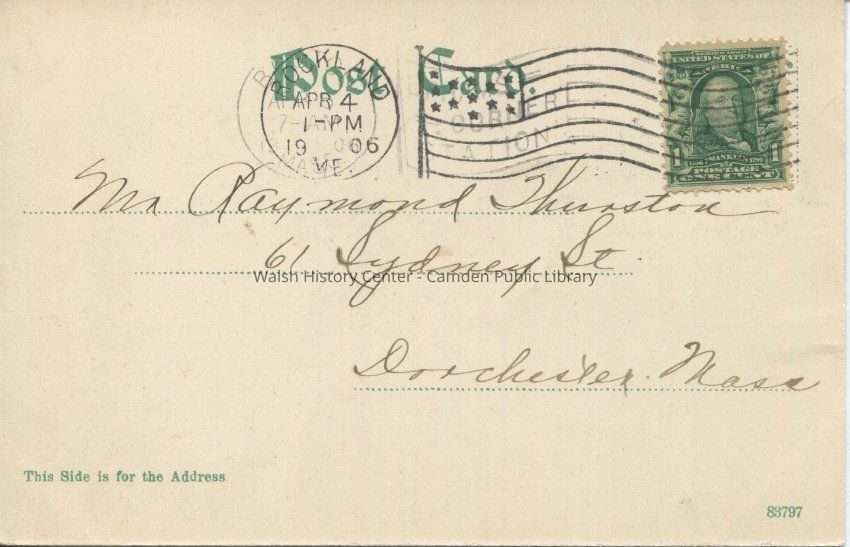 Post Card.
ROCKLAND
APR 4
1-PM
1906
ME.
STATION
SERIES 1902
UNITED STATES OF AMERICA
1 FRANKLIN 1790 1
POSTAGE
ONE CENT
Mr Raymond Thurston
61 Sydney St
Walsh History Center - Camden Public Library
Dorchester. Mass
This Side is for the Address.
83797